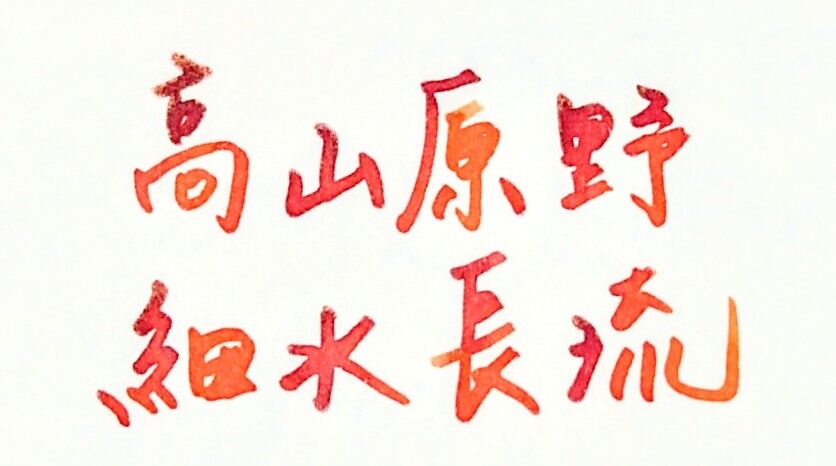 高山原野
細水長流